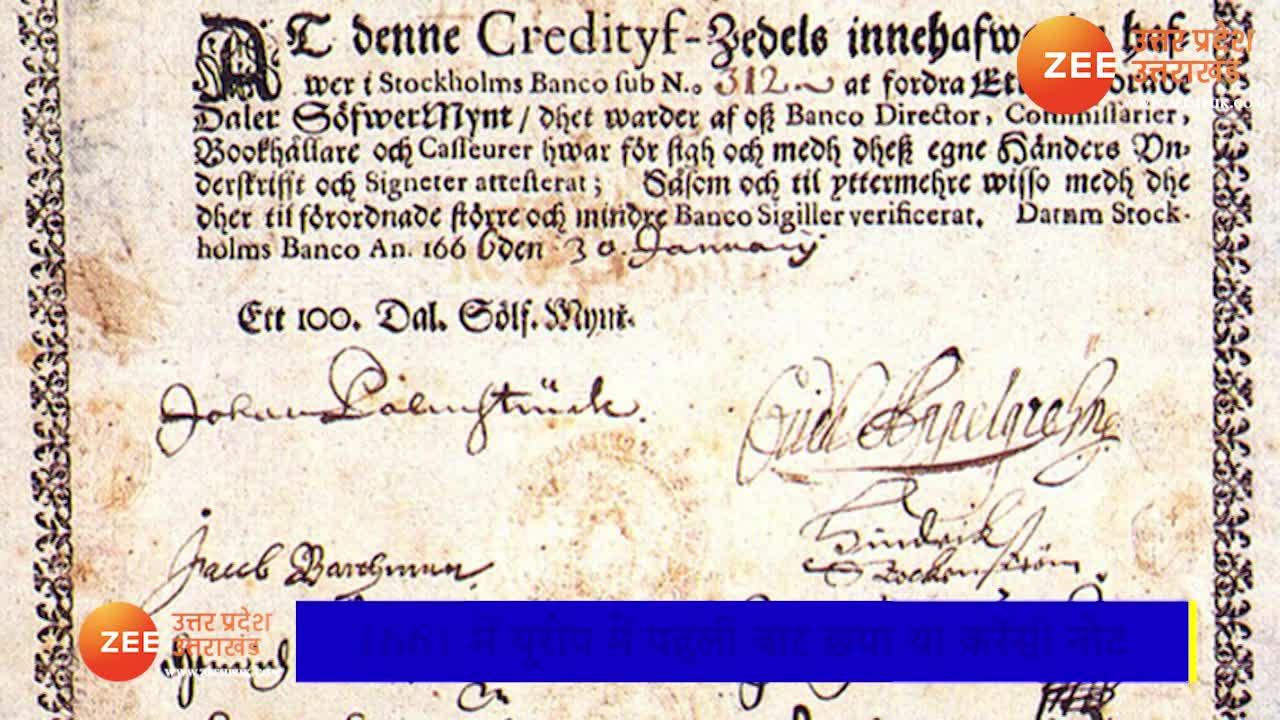 AT denne Credityf-Zedels innehafw
wer i Stockholms Banco sub N.o 312 at fordra Ett
Daler Sölfwer Mynt / dhet warder af oß Banco Director, Commissarier,
Bookhållare och Casseurer hwar för sigh och medh dheß egne Händers Vn-
derskrifft och Signeter attesterat; Såsom och til yttermehre wisso medh dhe
dher til förordnade större och mindre Banco Sigiller verificerat. Datum Stock-
holms Banco An. 1666 den 30. January
Ett 100. Dal. Sölf. Mynt.
Johan Palmstruck.
Jacob Barchman
Hindrik
Stockenström
ZEE
उत्तर प्रदेश
उत्तराखंड
ZEE
उत्तर प्रदेश
उत्तराखंड
1661 में यूरोप में पहली बार छपा था करेंसी नोट